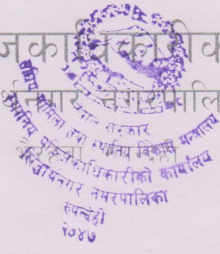 नगरपालि
नेपाल सरकार
सङ्घीय मामिला तथा स्थानीय विकास मन्त्रालय
स्थानिय पञ्जिकाधिकारीको कार्यालय
सिद्धार्थनगर नगरपालिका
रुपन्देही
२०४७